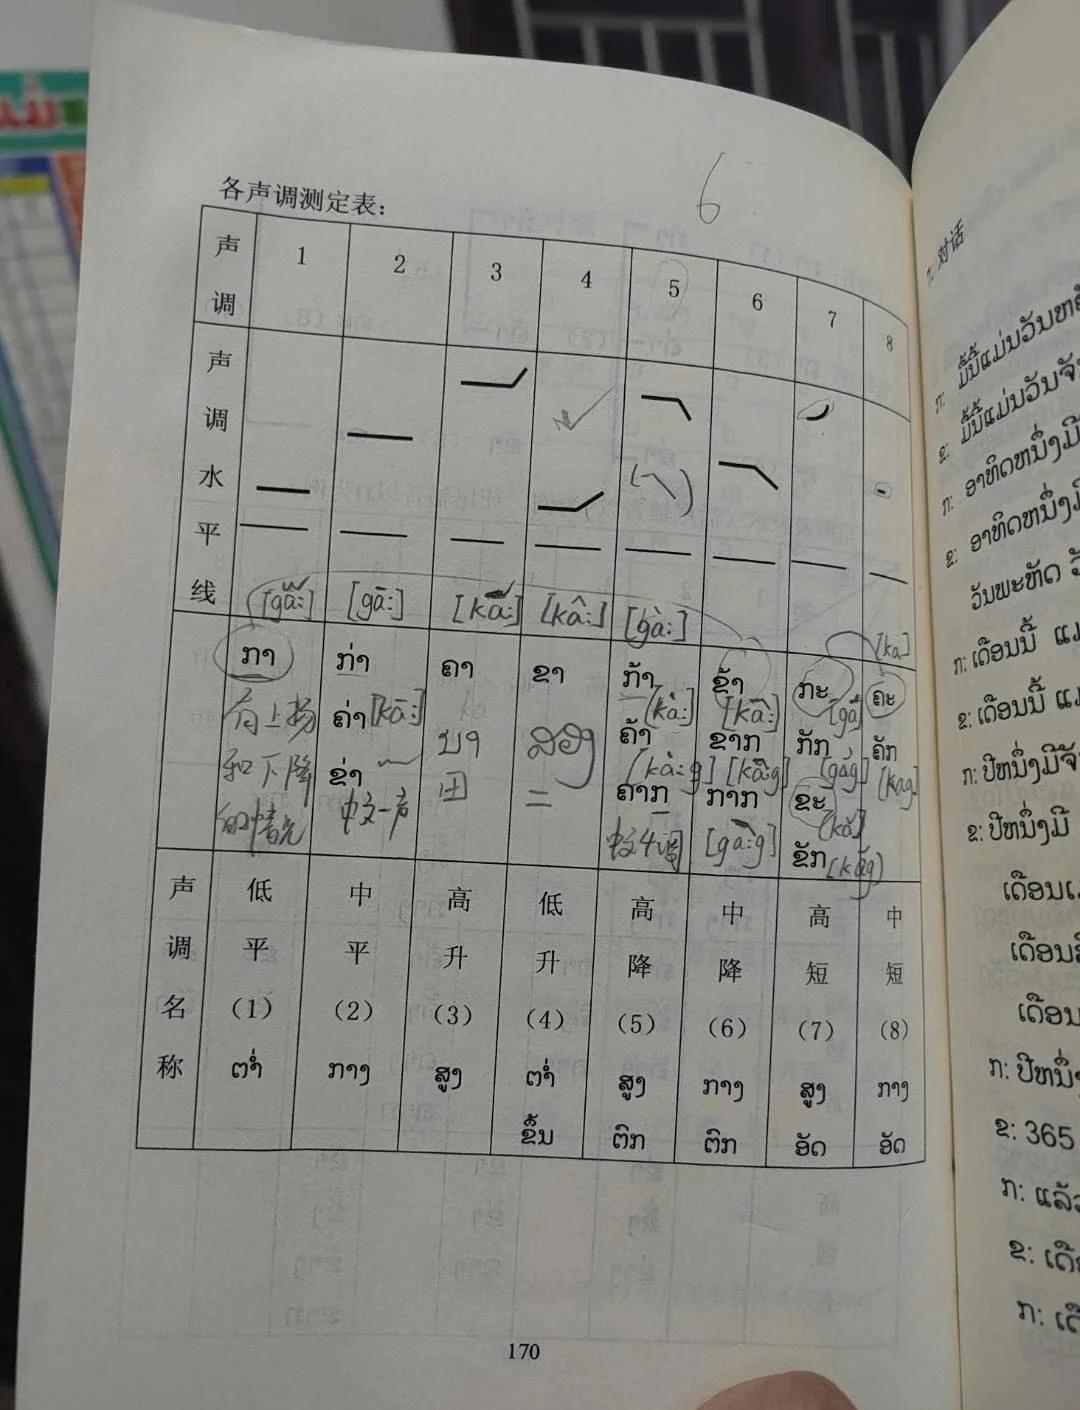 6
各声调测定表:
声调 1 2 3 4 5 6 7 8
声调水平线
[gā:] [kâ:] [gà:] [ka]
ກາ ກ່າ ຄາ ຂາ ກ້າ ຂ້າ ກະ ຄະ
有上扬 ຄ່າ [kā:] ນາ ສອງ ຄ້າ [kà:] ຂາກ ກັກ ຄັກ
和下降 ຂ່າ 田 二 [kà:g] [kag]
的情况 中文一声 ຄາກ ກາກ ຂະ
中文4调 ຂັກ
声调名称
低平 中平 高升 低升 高降 中降 高短 中短
(1) (2) (3) (4) (5) (6) (7) (8)
ຕ່ຳ ກາງ ສູງ ຕ່ຳ ສູງ ກາງ ສູງ ກາງ
ຂຶ້ນ ຕົກ ຕົກ ອັດ ອັດ
170
ໆ: 对话
ກ: ມື້ນີ້ແມ່ນວັນຫຍັ
ຂ: ມື້ນີ້ແມ່ນວັນຈັນ
ກ: ອາທິດຫນຶ່ງມີ
ຂ: ອາທິດຫນຶ່ງມີ
ວັນພະຫັດ ວັ
ກ: ເດືອນນີ້ ແມ
ຂ: ເດືອນນີ້ ແມ
ກ: ປີຫນຶ່ງມີຈັ
ຂ: ປີຫນຶ່ງມີ
ເດືອນ
ເດືອນ
ເດືອນ
ກ: ປີຫນຶ່ງ
ຂ: 365
ກ: ແລ້ວ
ຂ: ເດື
ກ: ເດື